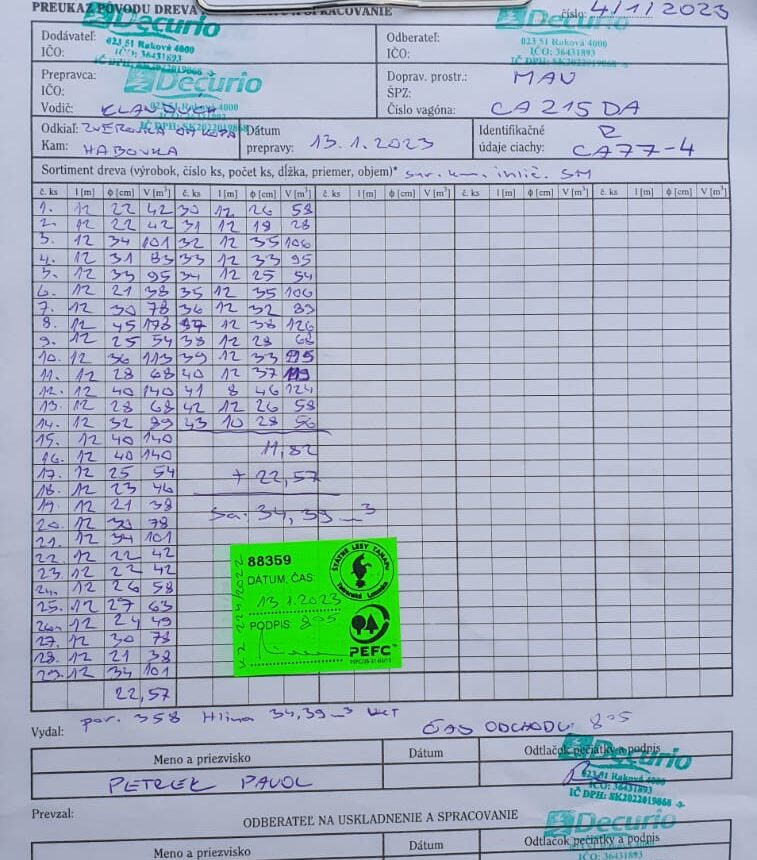 PREUKAZ PÔVODU DREVA SPRACOVANIE
číslo: 4/1/2023
Dodávateľ: Decurio
023 51 Raková 4000
IČO: IČO: 36431893
IČ DPH: SK2022019868
Odberateľ: Decurio
023 51 Raková 4000
IČO: IČO: 36431893
IČ DPH: SK2022019868
Prepravca: Decurio
IČO:
023 51 Raková 4000
IČ DPH: SK2022019868
Vodič:
Doprav. prostr.: MAN
ŠPZ:
Číslo vagóna: CA215DA
Odkiaľ: ZVEROVKA
Kam: HABOVKA
Dátum
prepravy: 13.1.2023
Identifikačné
údaje ciachy: CA77-4
Sortiment dreva (výrobok, číslo ks, počet ks, dĺžka, priemer, objem)* SM
č. ks l [m] ϕ [cm] V [m³] č. ks l [m] ϕ [cm] V [m³] č. ks l [m] ϕ [cm] V [m³] č. ks l [m] ϕ [cm] V [m³] č. ks l [m] ϕ [cm] V [m³]
1. 12 22 42 30 12 26 58
2. 12 22 42 31 12 18 28
3. 12 34 101 32 12 35 106
4. 12 31 83 33 12 33 95
5. 12 33 95 34 12 25 54
6. 12 21 38 35 12 35 106
7. 12 30 78 36 12 32 89
8. 12 45 178 37 12 38 126
9. 12 25 54 38 12 28 68
10. 12 36 113 39 12 33 95
11. 12 28 68 40 12 37 119
12. 12 40 140 41 8 46 124
13. 12 28 68 42 12 26 58
14. 12 32 89 43 10 28 56
15. 12 40 140
16. 12 40 140 11,82
17. 12 25 54 + 22,57
18. 12 23 46
19. 12 21 38 Sa: 34,39 m³
20. 12 30 78
21. 12 34 101
22. 12 22 42
23. 12 22 42
24. 12 26 58
25. 12 27 63
26. 12 24 49
27. 12 30 78
28. 12 21 38
29. 12 34 101
22,57
88359
ŠTÁTNE LESY TANAPU
Tatranská Lomnica
DÁTUM, ČAS:
13.1.2023
PODPIS: 805
PEFC™
por. 358 Hlina 34,39 m³ ČAS ODCHODU: 805
Vydal:
Meno a priezvisko Dátum Odtlačok pečiatky a podpis
PETREK PAVOL
Decurio
023 51 Raková 4000
IČO: 36431893
IČ DPH: SK2022019868
Prevzal:
ODBERATEĽ NA USKLADNENIE A SPRACOVANIE
Decurio
Meno a priezvisko Dátum Odtlačok pečiatky a podpis
023 51 Raková 4000
IČO: 36431893